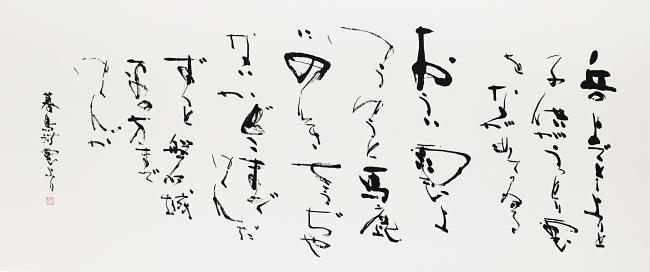 丘の上でとしよりと
こ供とうつとりと雲
をながめてゐる
おうい雲よ
ゆうゆうと馬鹿
にのんきさうぢや
ないかどこまでゆくんだ
ずつと磐城
平の方まで
ゆくんか
暮鳥詩 雲より